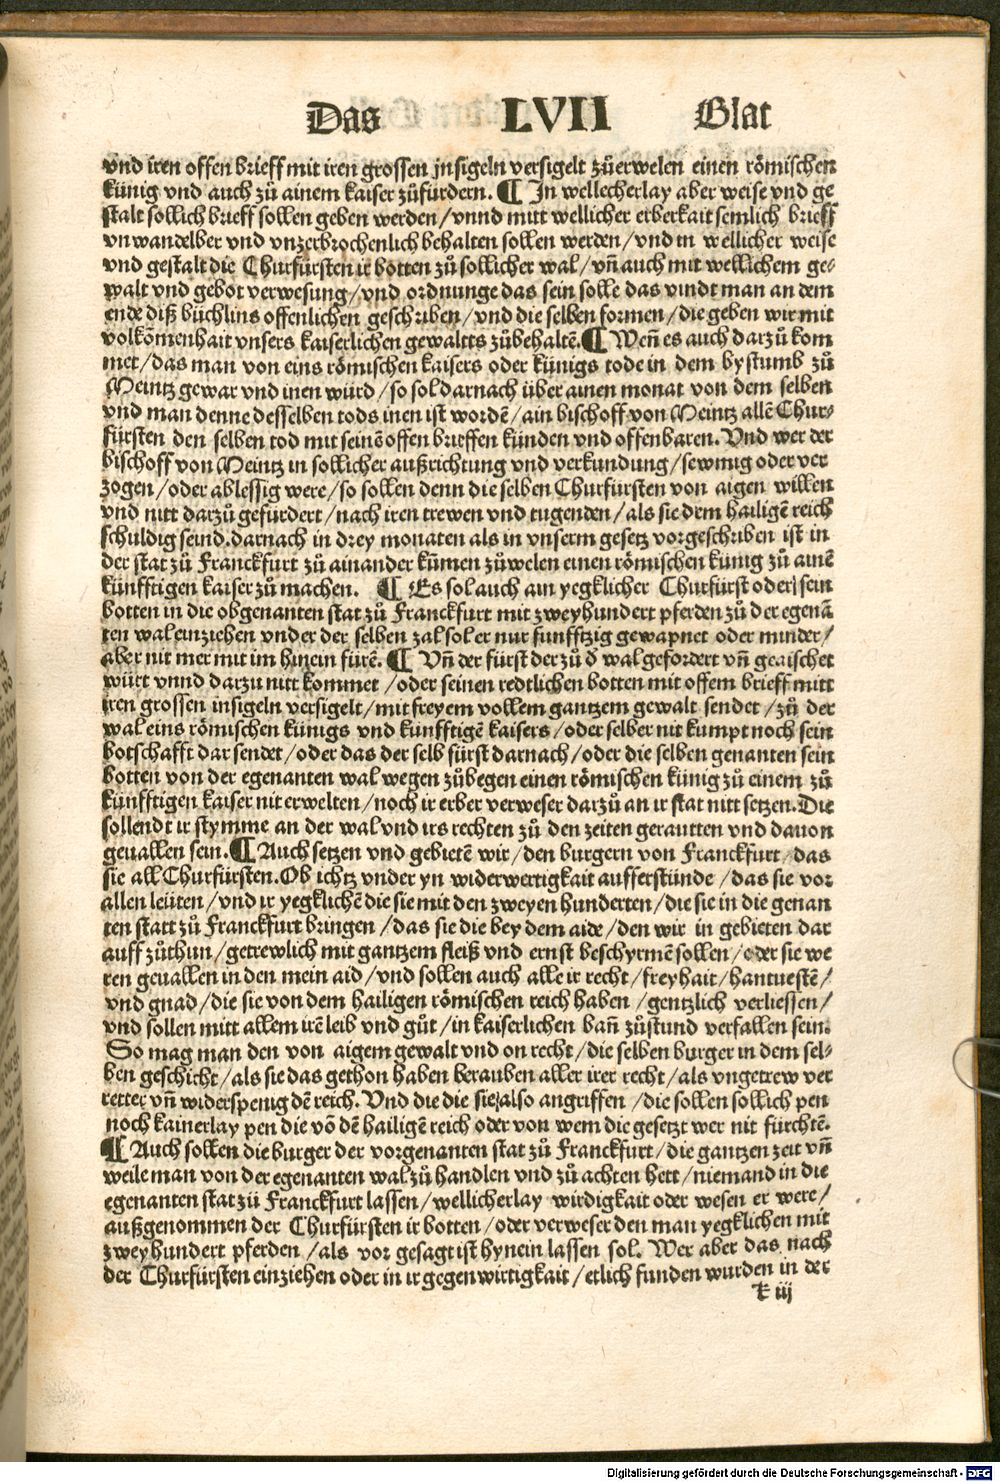 Das LVII Blat
vnd iren offen brieff mit iren grossen jnsigeln versigelt zůerwelen einen römischen
künig vnd auch zů ainem kaiser zůfürdern. ¶ In wellecherlay aber weise vnd ge
stalt sollich brieff sollen geben werden / vnnd mitt wellicher erberkait semlich brieff
vnwandelber vnd vnzerbrochenlich behalten sollen werden / vnd in wellicher weise
vnd gestalt die Churfürsten ir botten zů sollicher wal / vn̄ auch mit wellichem ge⸗
walt vnd gebot verwesung / vnd ordnunge das sein solle das vindt man an dem
ende diß büchlins offenlichen geschriben / vnd die selben formen / die geben wir mit
volkōmenhait vnsers kaiserlichen gewaltts zůbehaltē. ¶ Wen̄ es auch darzů kom
met / das man von eins römischen kaisers oder künigs tode in dem bystumb zů
Meintz gewar vnd inen würd / so sol darnach über ainen monat von dem selben
vnd man denne desselben tods inen ist wordē / ain bischoff von Meintz allē Chur⸗
fürsten den selben tod mit seinē offen brieffen künden vnd offenbaren. Vnd wer der
bischoff von Meintz in sollicher außrichtung vnd verkundung / sewmig oder ver
zogen / oder ablessig were / so sollen denn die selben Churfürsten von aigen willen
vnd nitt darzů gefürdert / nach iren trewen vnd tugenden / als sie dem hailigē reich
schuldig seind. darnach in drey monaten als in vnserm gesetz vorgeschriben ist in
der stat zů Franckfurt zů ainander kūmen zůwelen einen römischen künig zů ainē
künfftigen kaiser zů machen. ¶ Es sol auch ain yegklicher Churfürst oder sein
botten in die obgenanten stat zů Franckfurt mit zweyhundert pferden zů der egenā
ten wal einziehen vnder der selben zal sol er nur funfftzig gewapnet oder minder /
aber nit mer mit im hinein fürē. ¶ Vn̄ der fürst der zů d̄ wal gefordert vn̄ geaischet
würt vnnd darzu nitt kommet / oder seinen redtlichen botten mit offem brieff mitt
iren grossen insigeln versigelt / mit freyem vollem gantzem gewalt sendet / zů der
wal eins römischen künigs vnd kunfftigē kaisers / oder selber nit kumpt noch sein
botschafft dar sendet / oder das der selb fürst darnach / oder die selben genanten sein
botten von der egenanten wal wegen zůbegen einen römischen künig zů einem zů
künfftigen kaiser nit erwelten / noch ir erber verweser darzů an ir stat nitt setzen. Die
sollendt ir stymme an der wal vnd irs rechten zů den zeiten gerautten vnd dauon
geuallen sein. ¶ Auch setzen vnd gebietē wir / den burgern von Franckfurt / das
sie all Churfürsten. Ob ichtz vnder yn widerwertigkait aufferstünde / das sie vor
allen leüten / vnd ir yegklichē die sie mit den zweyen hunderten / die sie in die genan
ten statt zů Franckfurt bringen / das sie die bey dem aide / den wir in gebieten dar
auff zůthun / getrewlich mit gantzem fleiß vnd ernst beschyrmē sollen / oder sie we
ren geuallen in den mein aid / vnd sollen auch alle ir recht / freyhait / hantuestē /
vnd gnad / die sie von dem hailigen römischen reich haben / gentzlich verliessen /
vnd sollen mitt allem irē leib vnd gůt / in kaiserlichen ban̄ zůstund verfallen sein.
So mag man den von aigem gewalt vnd on recht / die selben burger in dem sel⸗
ben geschicht / als sie das gethon haben berauben aller irer recht / als vngetrew ver
retter vn̄ widerspenig dē reich. Vnd die die sie also angriffen / die sollen sollich pen
noch kainerlay pen die vō dē hailigē reich oder von wem die gesetzt wer nit fürchtē.
¶ Auch sollen die burger der vorgenanten stat zů Franckfurt / die gantzen zeit vn̄
weile man von der egenanten wal zů handlen vnd zů achten hett / niemand in die
egenanten stat zů Franckfurt lassen / wellicherlay wirdigkait oder wesen er were /
außgenommen der Churfürsten ir botten / oder verweser den man yegklichen mit
zweyhundert pferden / als vor gesagt ist hynein lassen sol. Wer aber das nach
der Churfürsten einziehen oder in ir gegenwirtigkait / etlich funden wurden in der
k iij
Digitalisierung gefördert durch die Deutsche Forschungsgemeinschaft - DFG